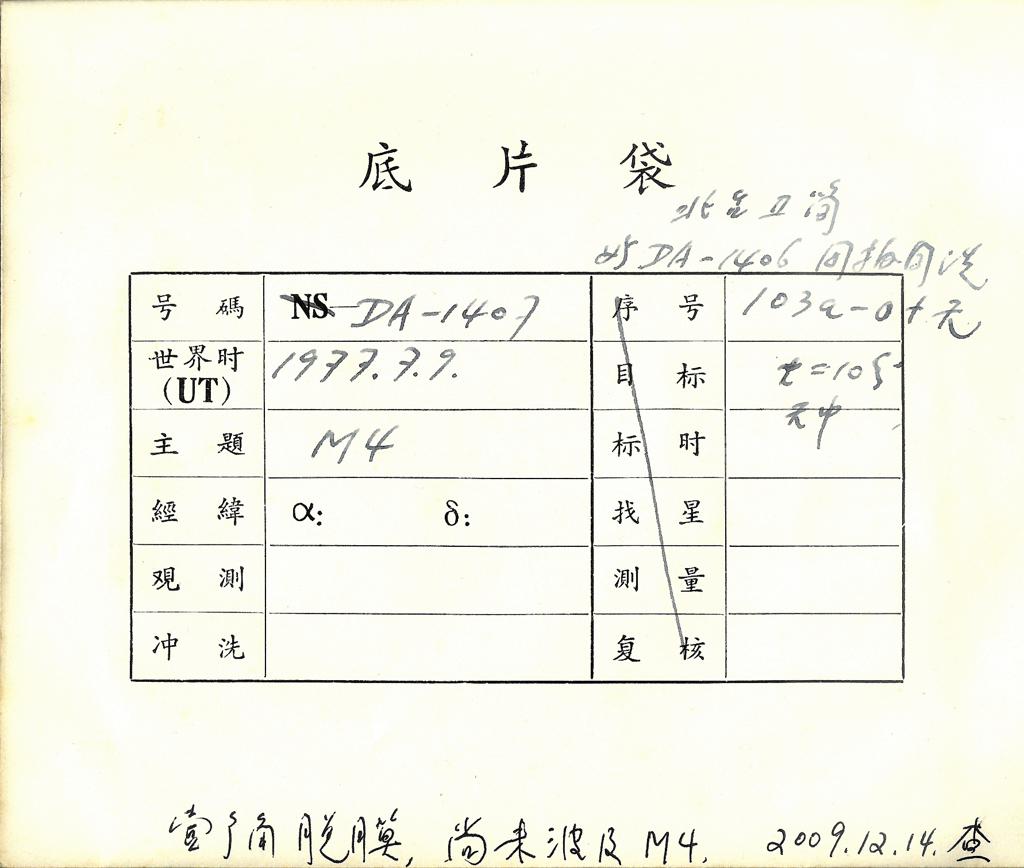 底 片 袋
北 Ⅱ 筒
与DA-1406 同拍同洗
号 碼 NS DA-1407 序 号 103a-O+无
世界时 (UT) 1977.7.9. 目 标 t=10
主 題 M4 标 时 天中
經 緯 α: δ: 找 星
观 測 測 量
冲 洗 复 核
角 脱膜, 尚未波及 M4. 2009.12.14. 查